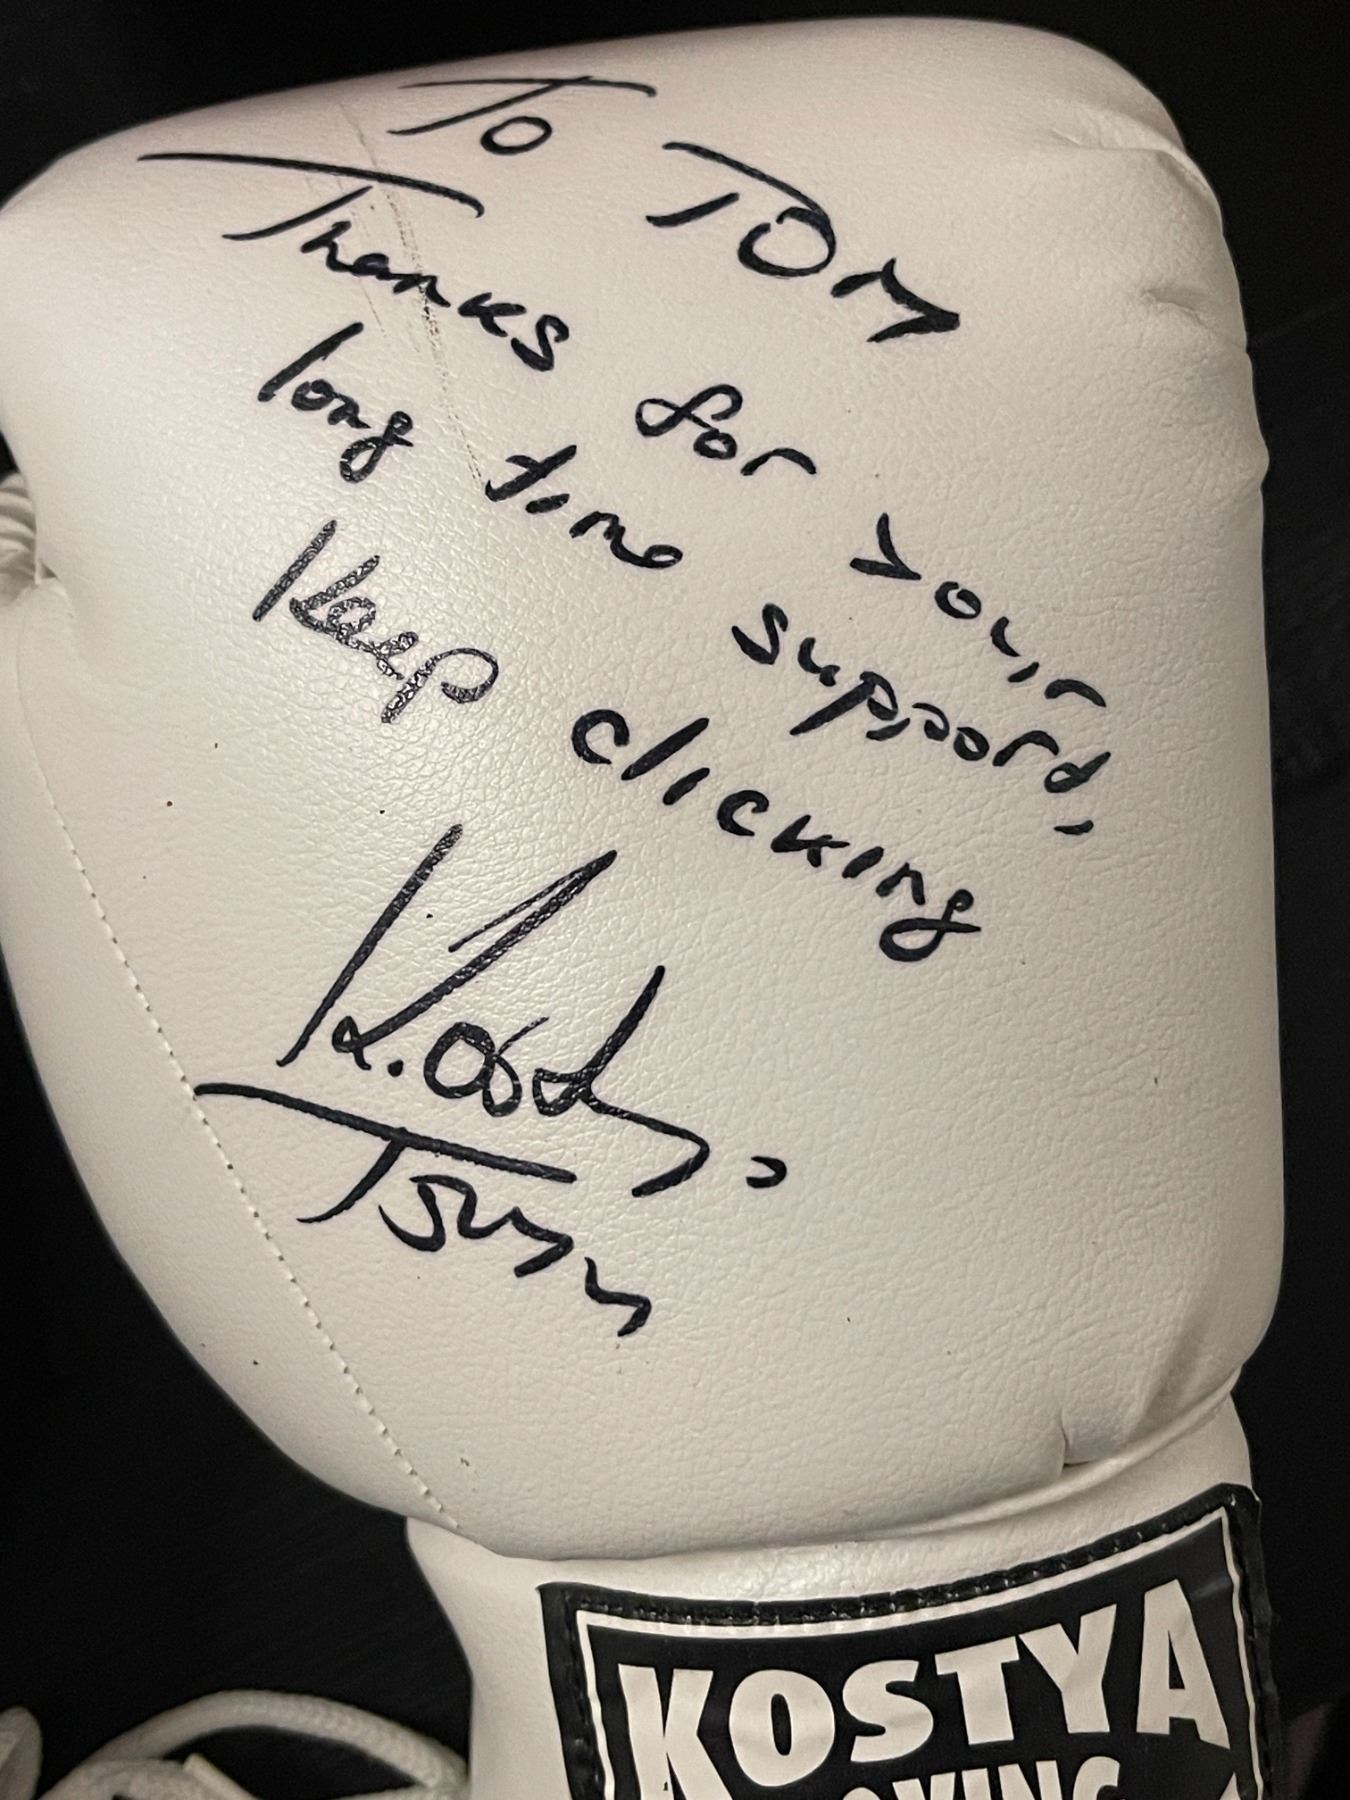 To Tom
Thanks for your
long time support,
Keep clicking
Kostya
Tszyu
KOSTYA
BOXING